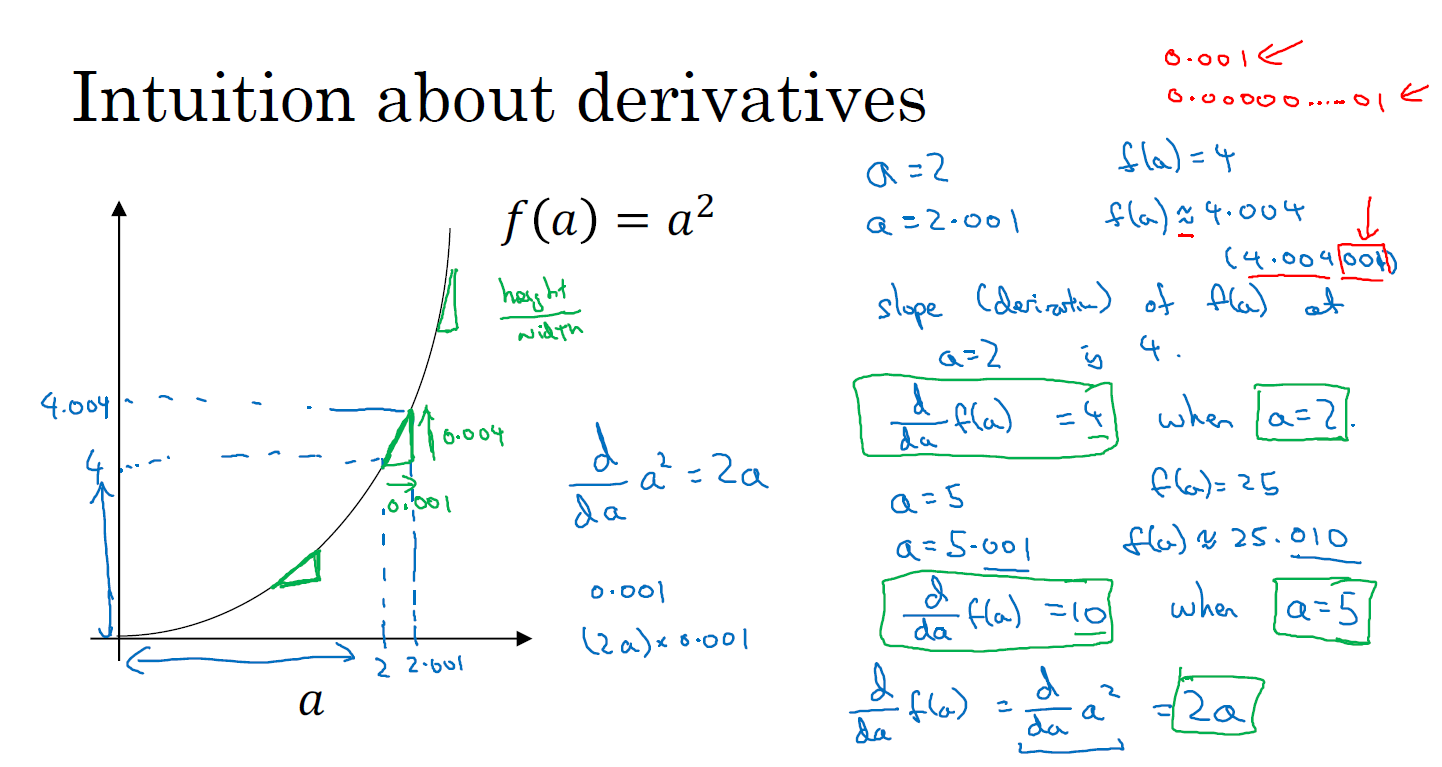 Intuition about derivatives
0.001
0.00000.....01
f(a) = a²
height
width
4.004
4
0.004
0.001
2 2.001
a
d/da a² = 2a
0.001
(2a) × 0.001
a = 2 f(a) = 4
a = 2.001 f(a) ≈ 4.004
(4.004001)
slope (derivative) of f(a) at
a = 2 is 4.
d/da f(a) = 4 when a = 2.
a = 5 f(a) = 25
a = 5.001 f(a) ≈ 25.010
d/da f(a) = 10 when a = 5
d/da f(a) = d/da a² = 2a